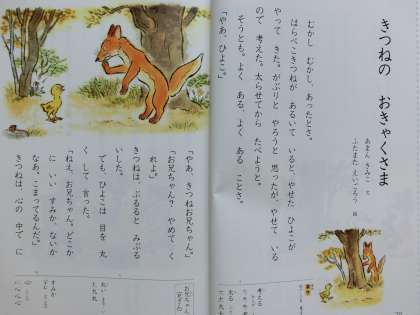 きつねの おきゃくさま
あまん きみこ 文
ふたまた えいごろう 絵
むかし むかし、あったとさ。
はらぺこきつねが あるいて いると、やせた ひよこが
やって きた。がぶりと やろうと 思ったが、やせて いる
ので 考えた。太らせてから たべようと。
そうとも。よく ある、よく ある ことさ。
「やあ、ひよこ。」
「やあ、きつねお兄ちゃん。」
「お兄ちゃん? やめて く
れよ。」
きつねは、ぶるると みぶる
いした。
でも、ひよこは 目を 丸
くして 言った。
「ねえ、お兄ちゃん。どこか
に いい すみか ないか
なあ。こまってるんだ。」
きつねは、心の 中で に
考える
丸い
お兄ちゃん
すみか